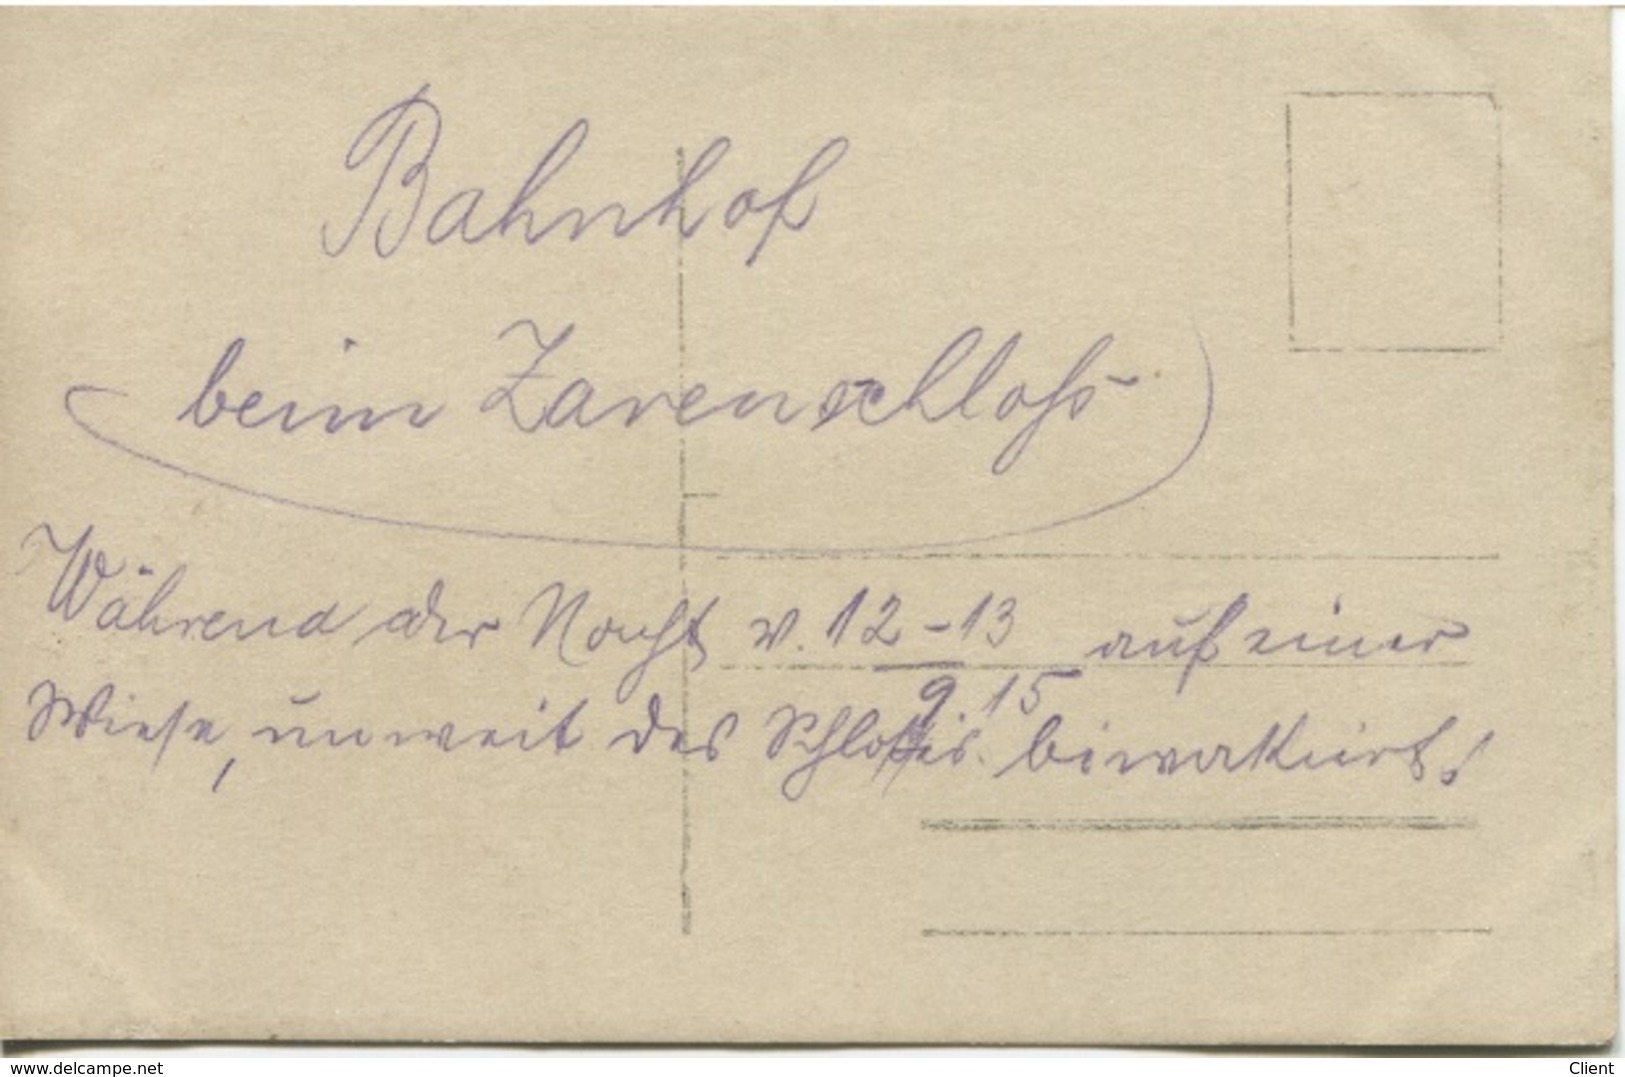 Bahnhof
beim Zarenschloss
Während der Nacht v. 12-13 auf einer
9. 15
Wiese, unweit des Schlosses biwakiert!
delcampe.net
Client